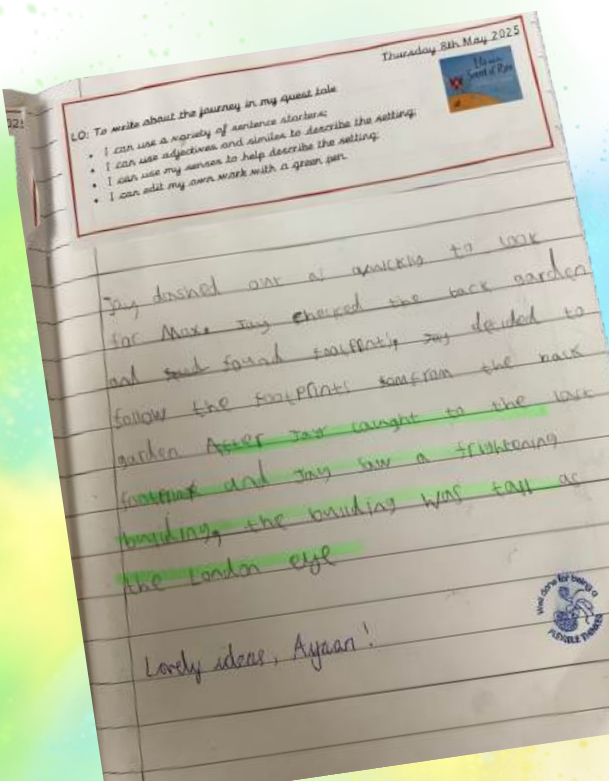 Thursday 8th May 2025
LO: To write about the journey in my quest tale
• I can use a variety of sentence starters;
• I can use adjectives and similes to describe the setting;
• I can use my senses to help describe the setting;
• I can edit my own work with a green pen.
Jay dashed out quickly to look
for Max. Jay checked the back garden
and found Jay decided to
follow the footprints from the back
garden After Jay caught to the last
and Jay saw a frightening
building, the building was tall as
the London eye
Lovely ideas, Ayaan!
Well done for being a
FLEXIBLE THINKER